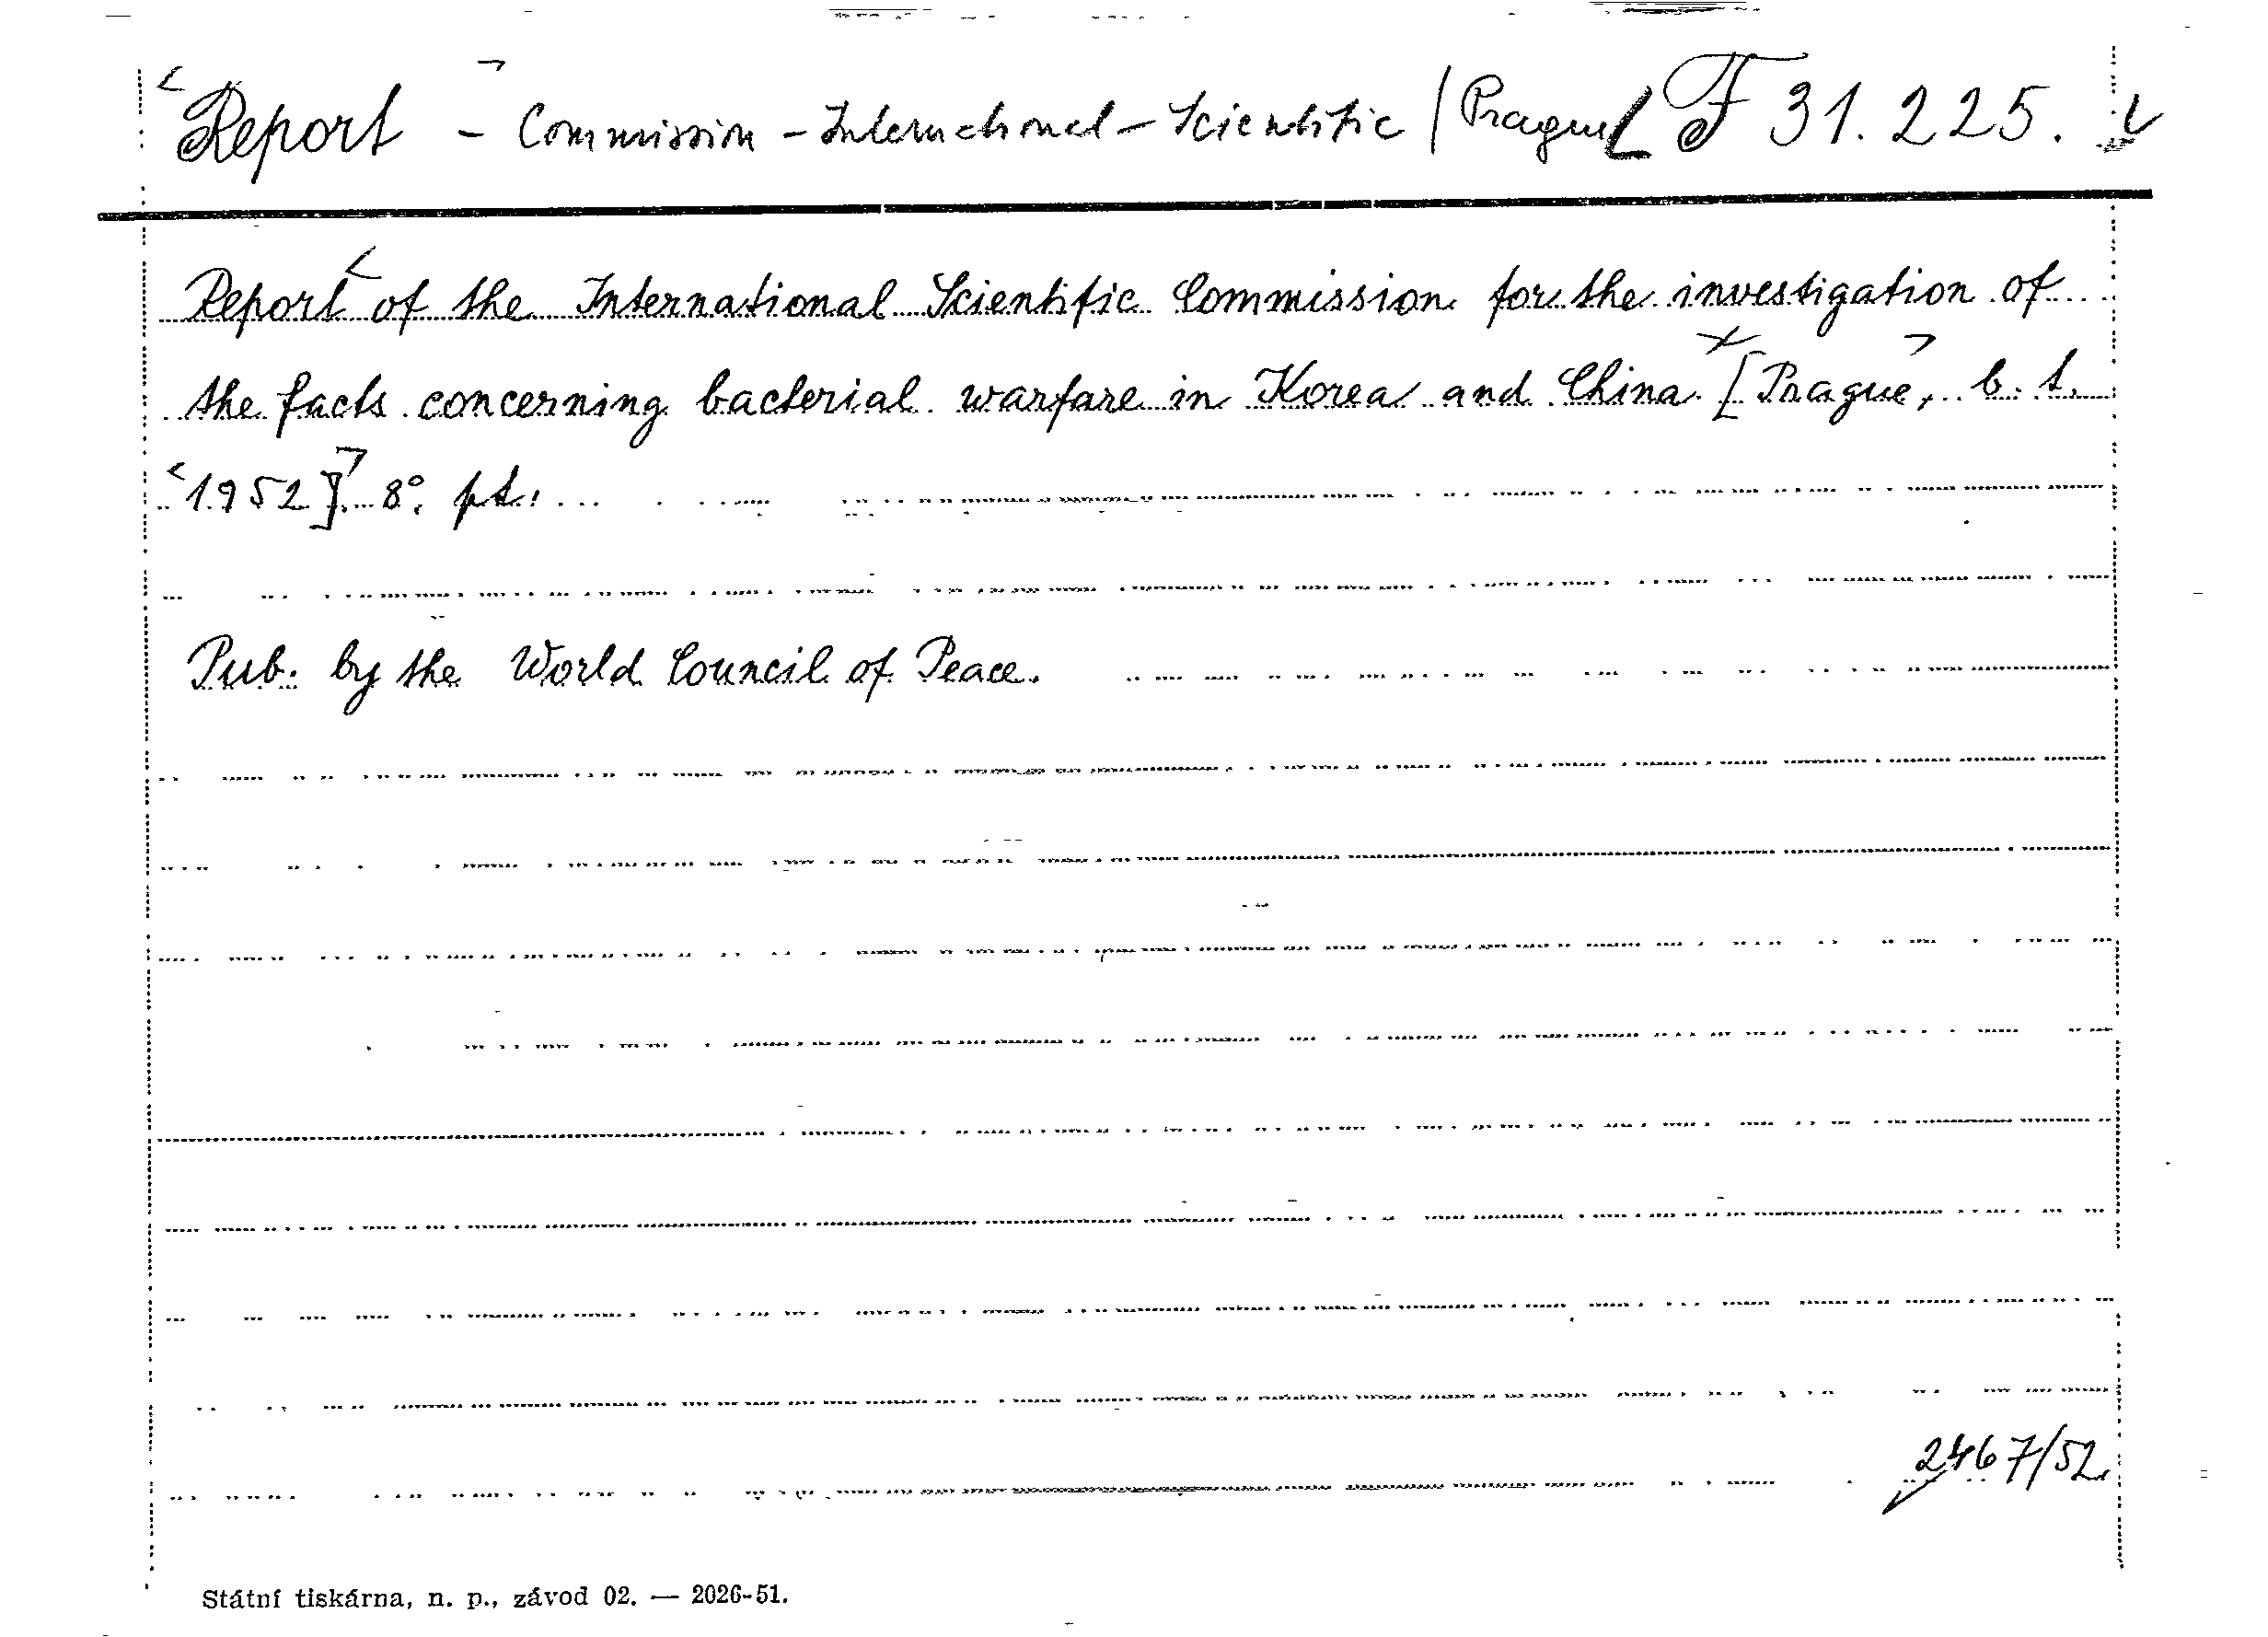 Report - Commission - International - Scientific / Prague F 31.225.
Report of the International Scientific Commission for the investigation of
the facts concerning bacterial warfare in Korea and China. [Prague, b. t.
1952]. 8°. pt.
Pub. by the World Council of Peace.
2467/52
Státní tiskárna, n. p., závod 02. — 2026-51.